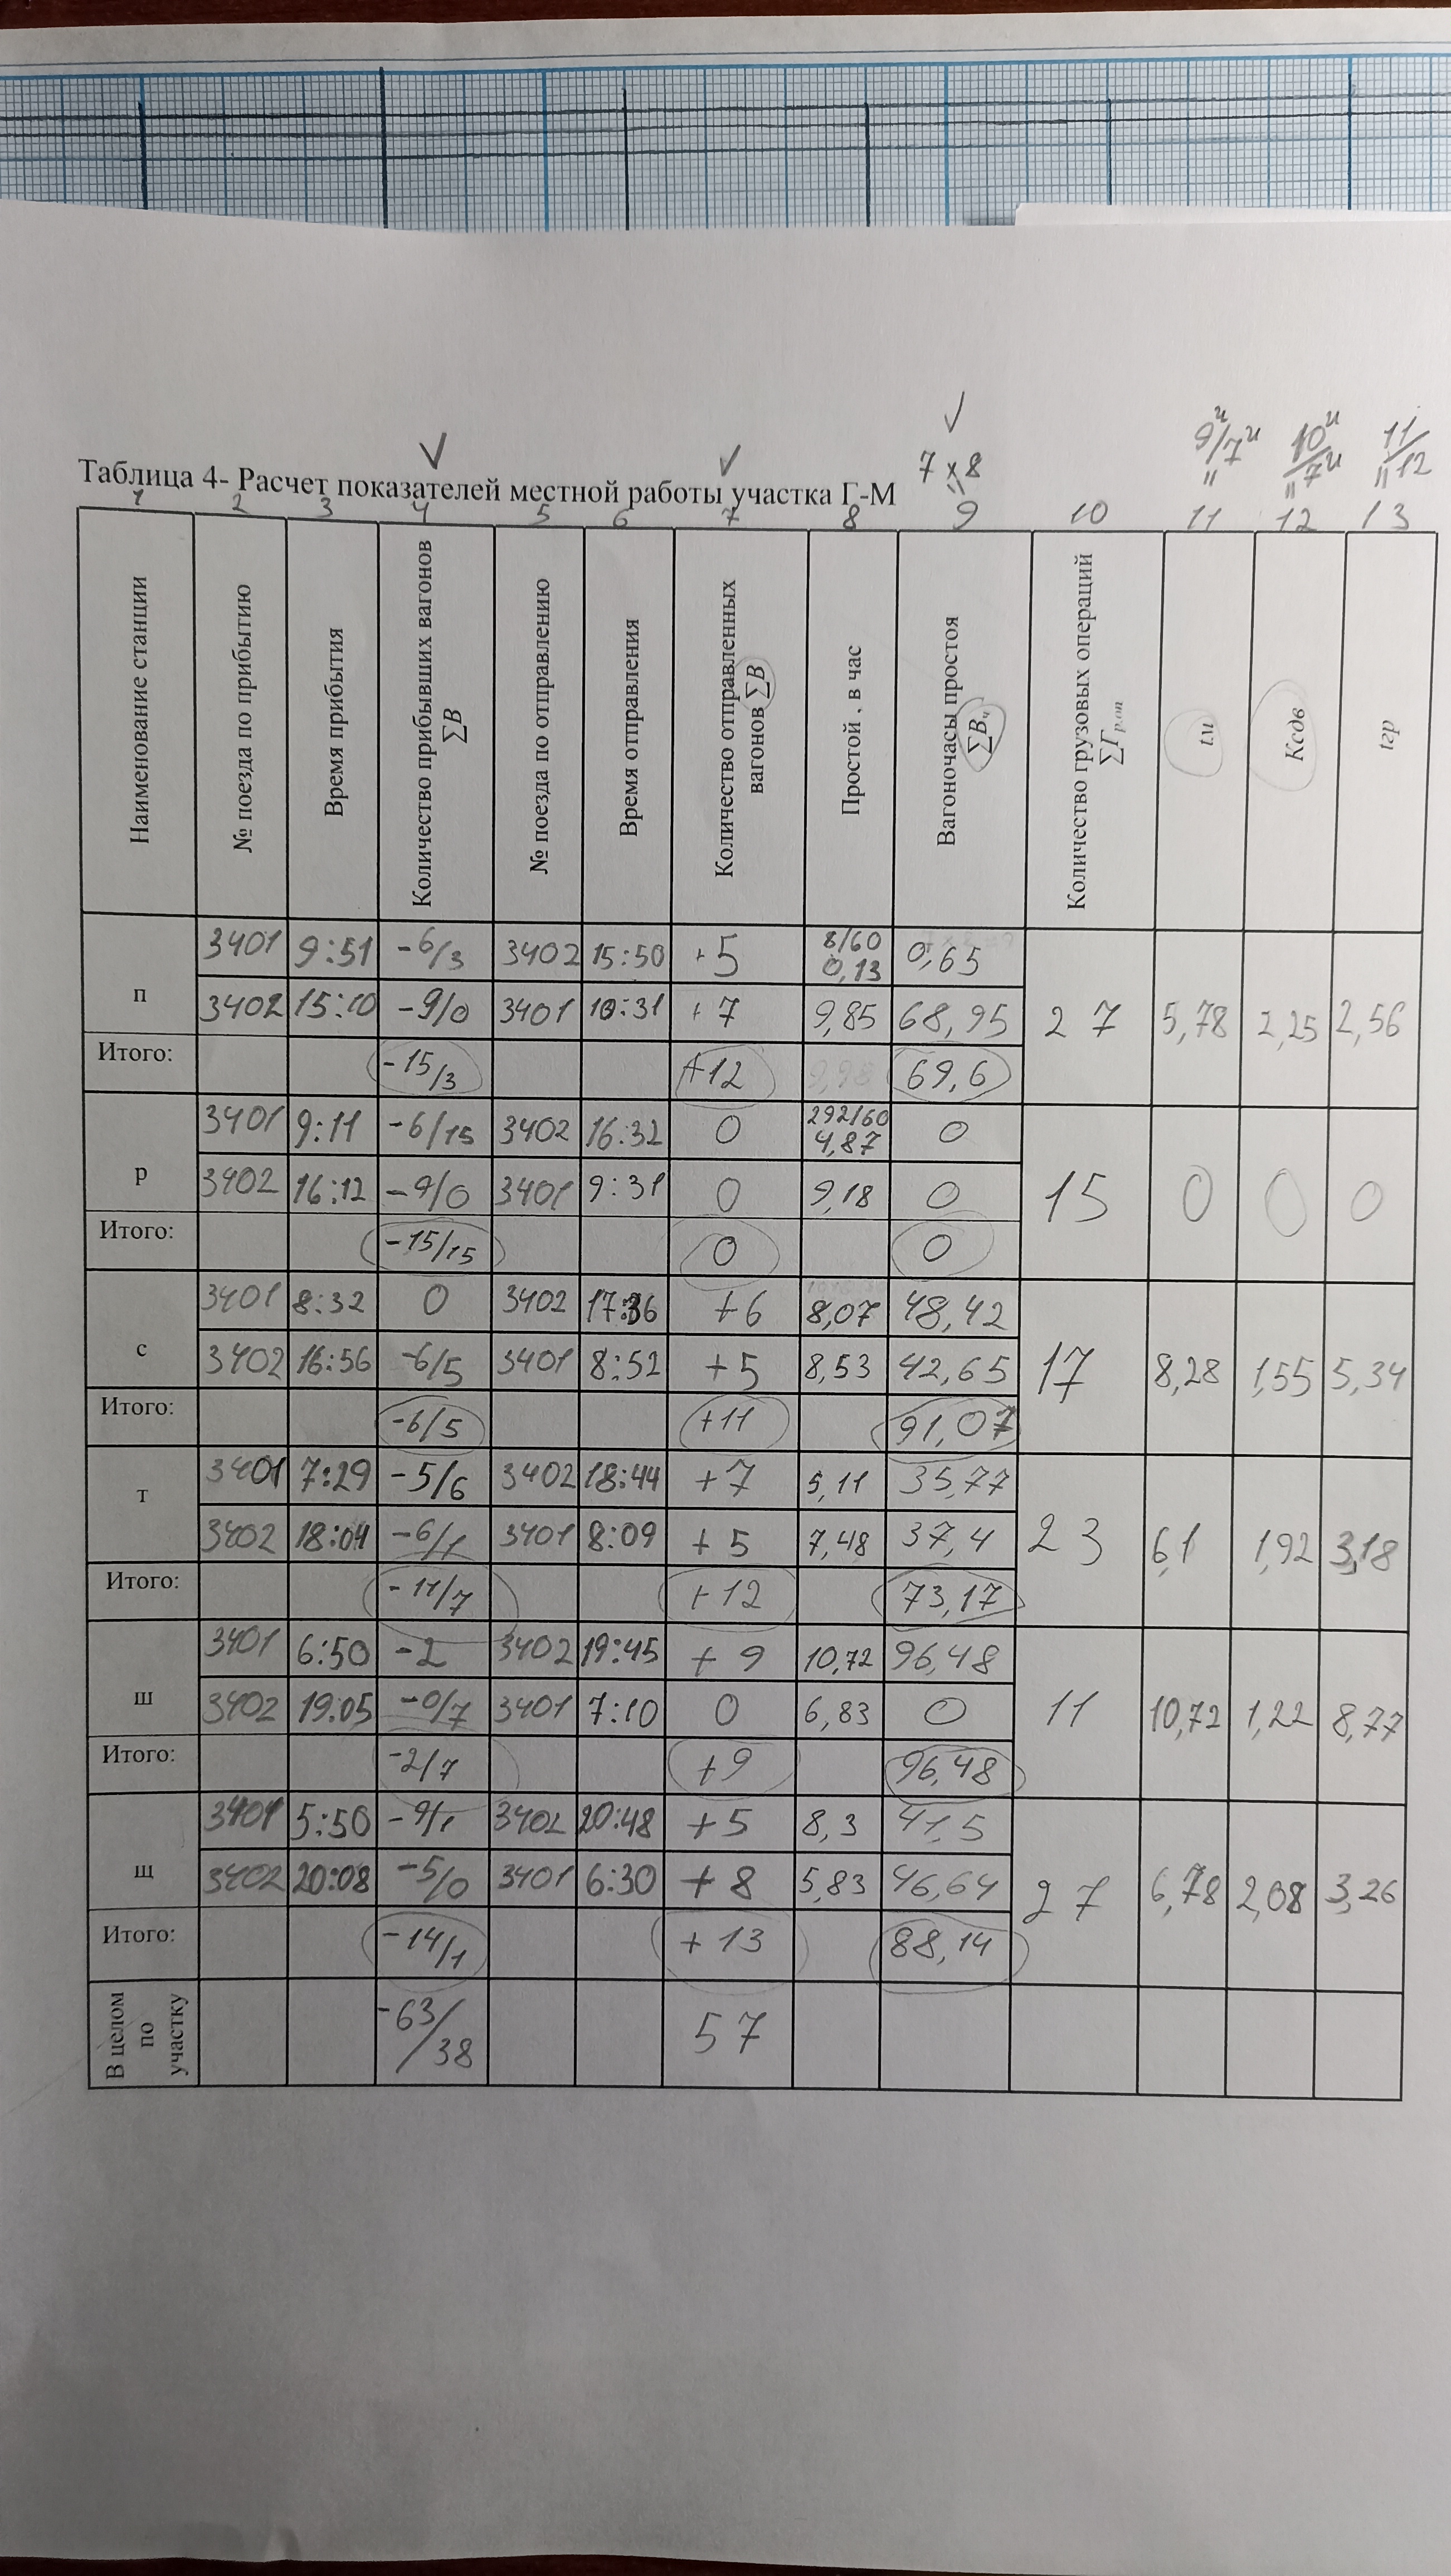 9и/7и 10и/7и 11/12
7 x 8 = = =
Таблица 4- Расчет показателей местной работы участка Г-М =
1 2 3 4 5 6 7 8 9 10 11 12 13
Наименование станции
№ поезда по прибытию
Время прибытия
Количество прибывших вагонов
∑В
№ поезда по отправлению
Время отправления
Количество отправленных
вагонов ∑В
Простой , в час
Вагоночасы простоя
∑Вч
Количество грузовых операций
∑Гр.оп
tм
Ксдв
tгр
п
3401 9:51 -6/3 3402 15:50 +5 8/60 0,13 0,65
3402 15:10 -9/0 3401 10:31 +7 9,85 68,95
27 5,78 2,25 2,56
Итого: -15/3 +12 69,6
р
3401 9:11 -6/15 3402 16:32 0 292/60 4,87 0
3402 16:12 -9/0 3401 9:31 0 9,18 0
15 0 0 0
Итого: -15/15 0 0
с
3401 8:32 0 3402 17:36 +6 8,07 48,42
3402 16:56 -6/5 3401 8:52 +5 8,53 42,65
17 8,28 1,55 5,34
Итого: -6/5 +11 91,07
т
3401 7:29 -5/6 3402 18:44 +7 5,11 35,77
3402 18:04 -6/1 3401 8:09 +5 7,48 37,4
23 6,1 1,92 3,18
Итого: -11/7 +12 73,17
ш
3401 6:50 -2 3402 19:45 +9 10,72 96,48
3402 19:05 -0/7 3401 7:10 0 6,83 0
11 10,72 1,22 8,77
Итого: -2/7 +9 96,48
щ
3401 5:50 -9/1 3402 20:48 +5 8,3 41,5
3402 20:08 -5/0 3401 6:30 +8 5,83 46,64
27 6,78 2,08 3,26
Итого: -14/1 +13 88,14
В целом
по
участку
-63/38 57